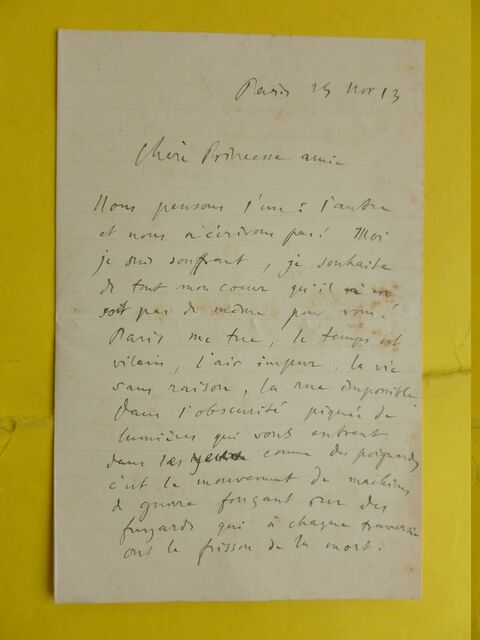 Paris 25 Nov 13
Chère Princesse amie
Nous pensons l'une à l'autre
et nous n'écrivons pas! Moi
je suis souffrant, je souhaite
de tout mon coeur qu'il n'en
soit pas de même pour vous!
Paris me tue, le temps est
vilain, l'air impur, la vie
sans raison, la rue impossible
Dans l'obscurité piquée de
lumières qui vous entrent
dans les yeux comme des poignards
c'est le mouvement de machines
de guerre fonçant sur des
fuyards qui à chaque traversée
ont le frisson de la mort.